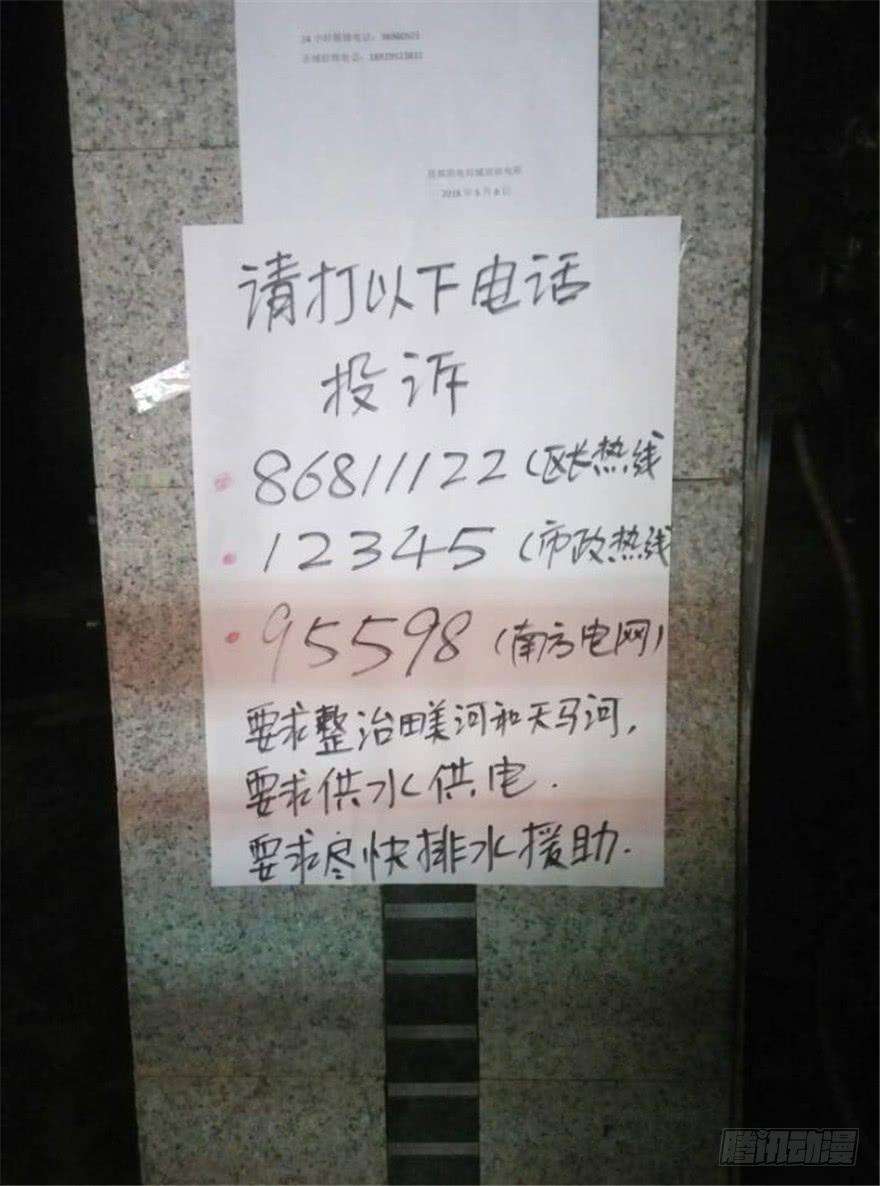 24小时报修电话：
请打以下电话
投诉
86811122（区长热线
12345（市政热线
95598（南方电网）
要求整治田美河和天马河，
要求供水供电．
要求尽快排水援助．
腾讯动漫